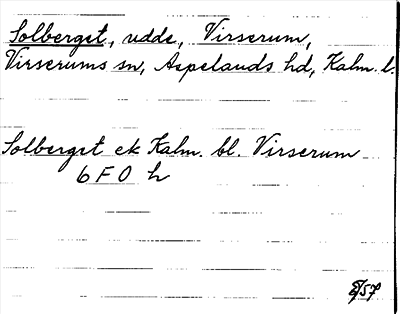 Solberget, udde, Virserum,
Virserums sn, Aspelands hd, Kalm. l.
Solberget ek Kalm. bl. Virserum
6 F 0 h